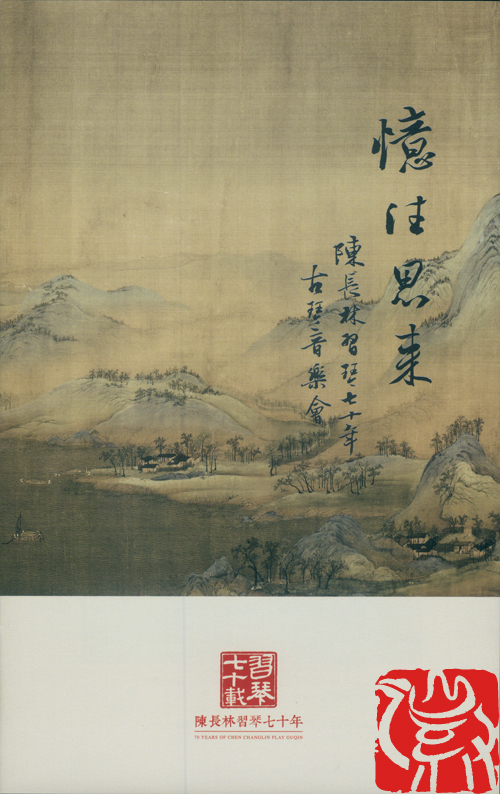 憶往思来
陳長林習琴七十年
古琴音樂會
習琴
七十載
陳長林習琴七十年
70 YEARS OF CHEN CHANGLIN PLAY GUQIN